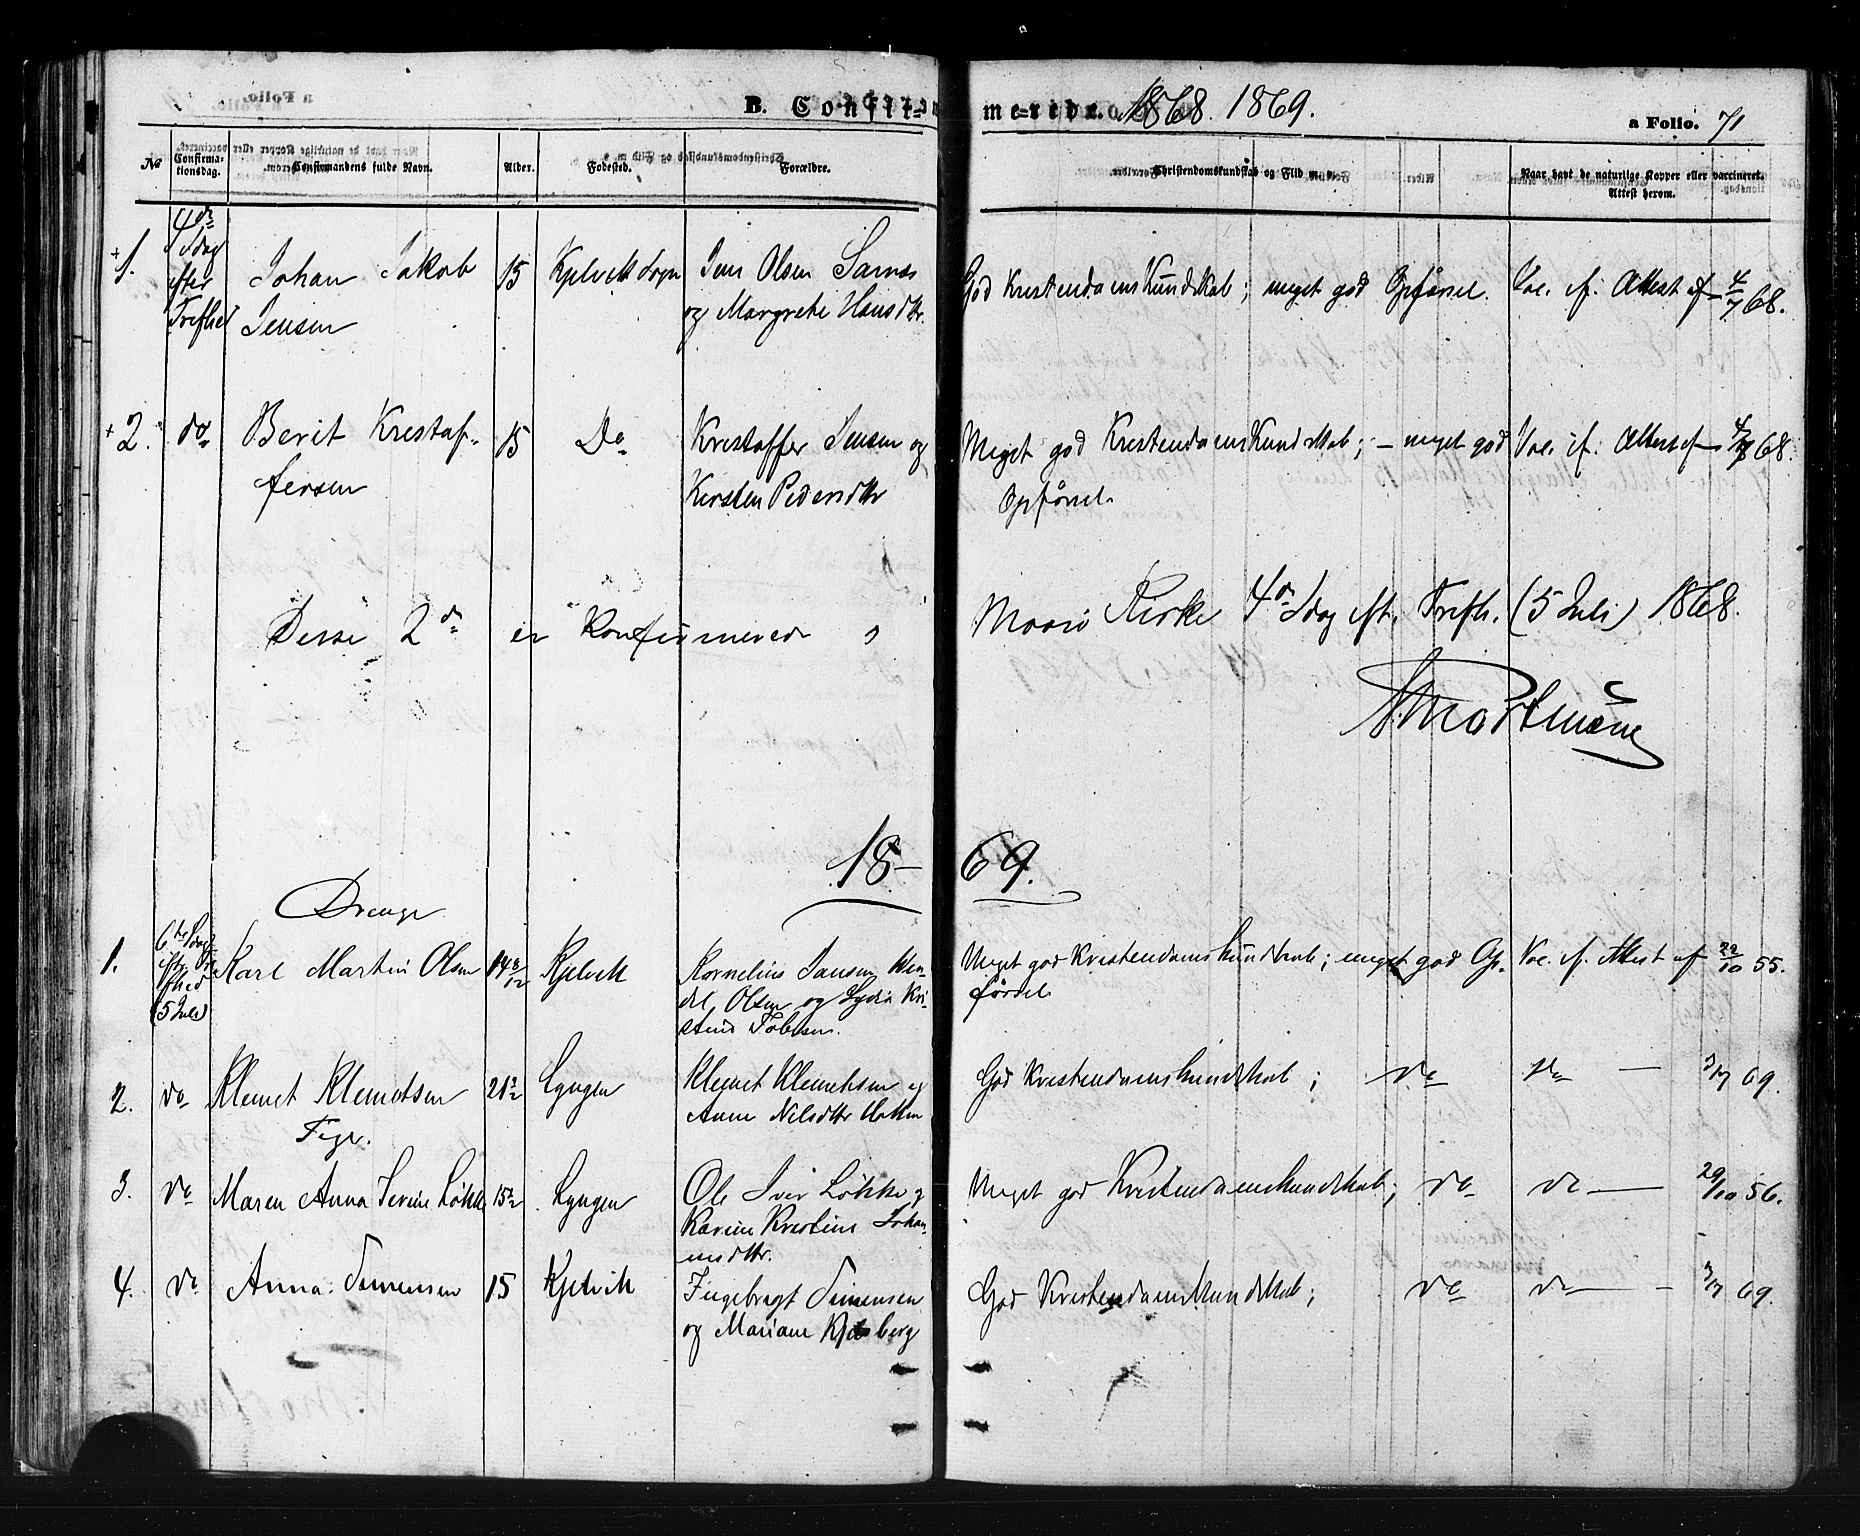 B. Confir-
merede. 1868. 1869.
a Folio. 71
№ Confirma-tionsdag. Confirmandens fulde Navn. Alder. Fødested. Forældre. Christendomskundskab og Flid m. v. Naar havt de naturlige Kopper eller vaccineret. Attest herom.
+1. 4de Sdag efter Trefhed Johan Jakob Jensen 15 Kjelvik Sogn Jens Olsen Sarnes og Margrete Hansdtr. God Kristendamskundskab; meget god Opførsel. Vac. if. Attest af 4/7 68.
+2. do Berit Krestaffersen 15 Do Krestaffer Jensen og Kersten Pedersdtr Meget god Kristendamskundskab; – meget god Opførsel. Vac. if. Attest af 4/7 68.
Disse 2de er konfirmerede i Maasø Kirke 4de Sdag eft. Trefh. (5 Juli) 1868.
18–69.
Drenge
1. 6te Sdag efter Trefhed (5 Juli) Karl Martin Olsen 14 8/12 Kjelvik Kornelius Jansen Olsen og Lydia Kristine Tobisen. Meget god Kristendamskundskab; meget god Opførsel Vac. if. Attest af 22/10 55.
2. do Klemet Klemetsen 21 1/2 Lyngen Klemet Klemetsen og Anne Nilsdtr God Kristendamskundskab; do do — 3/7 69.
Piger.
3. do Maren Anna Serine Løkke 15 1/2 Lyngen Ole Iver Løkke og Karine Kristine Johannesdtr. Meget god Kristendamskundskab; do do — 29/10 56.
4. do Anna Simensen 15 Kjelvik Ingebregt Simensen og Mariane Kjelsberg God Kristendamskundskab; do do — 3/7 69.